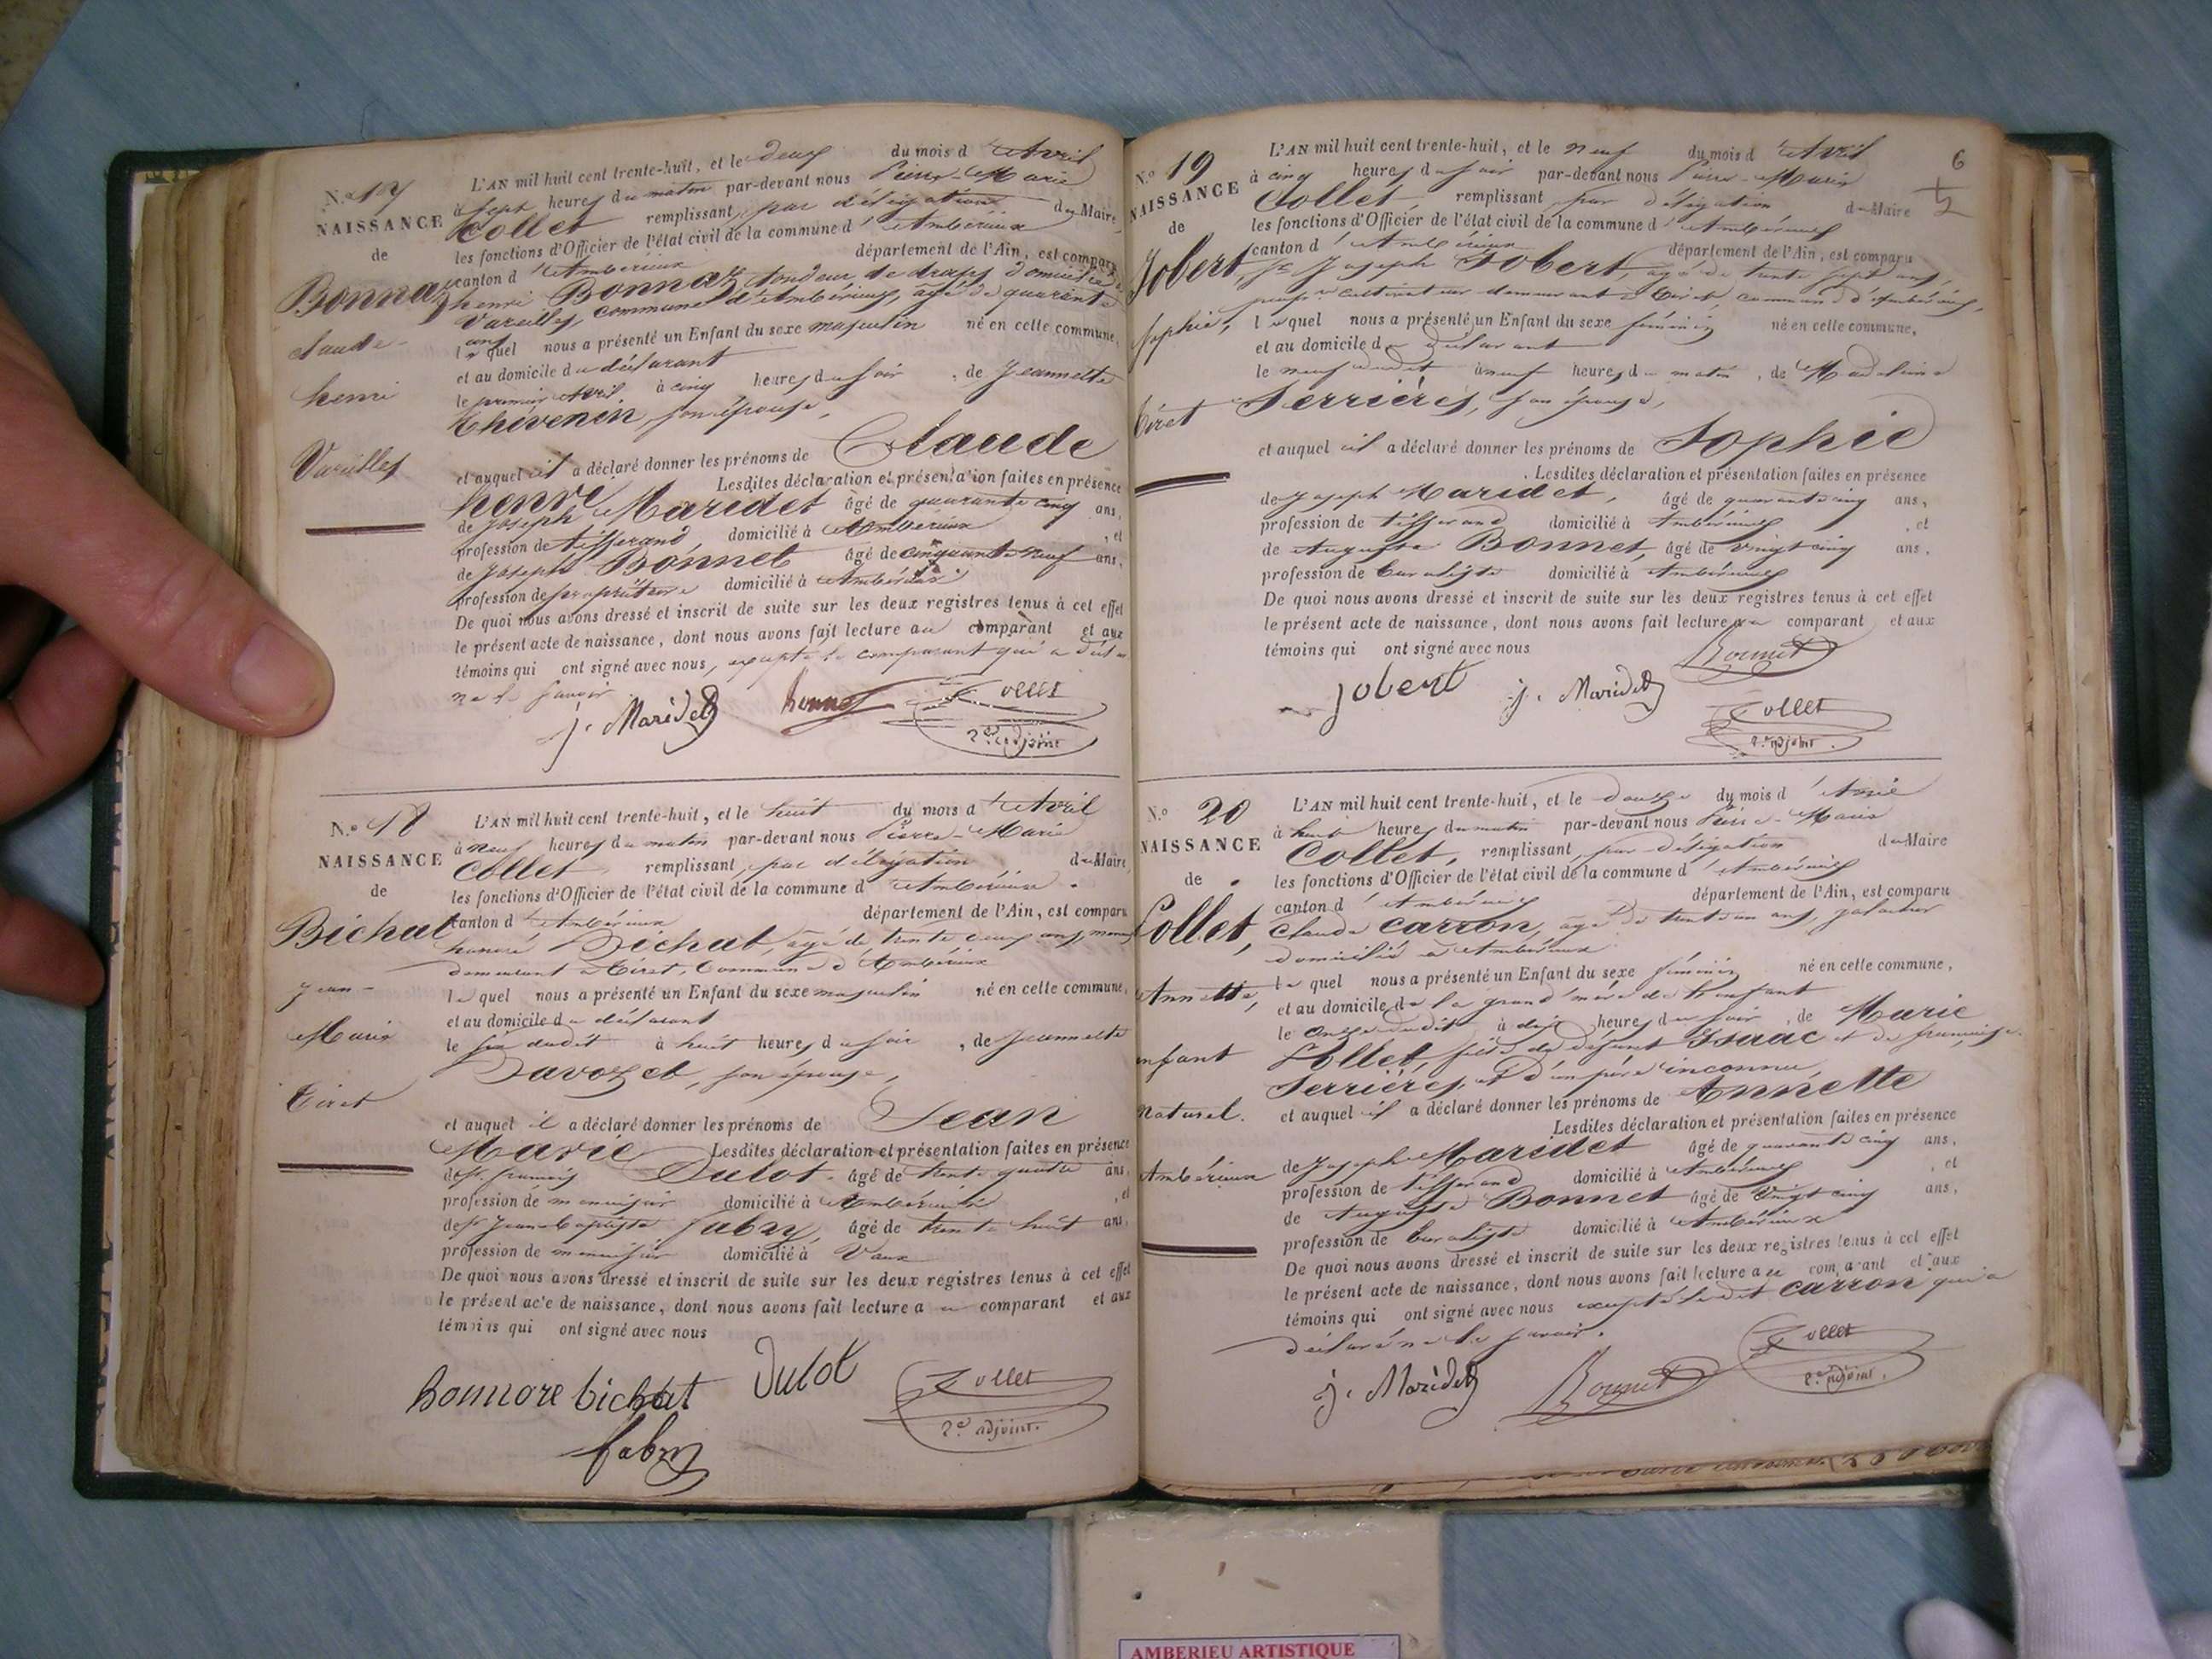 N.° 17
NAISSANCE
de
Bonnaz
claude
henri
Vareilles
L'AN mil huit cent trente-huit, et le deux du mois d'Avril
à sept heures du matin par-devant nous Pierre-Marie
Collet remplissant, par délégation du Maire,
les fonctions d'Officier de l'état civil de la commune d'Ambérieux
canton d'Ambérieux département de l'Ain, est comparu
henri Bonnaz tondeur de draps domicilié à
Vareilles, commune d'Ambérieux, âgé de quarante
ans
lequel nous a présenté un Enfant du sexe masculin né en cette commune,
et au domicile du déclarant
le premier Avril à cinq heures du soir, de Jeannette
Thévenin, son épouse,
et auquel il a déclaré donner les prénoms de Claude
henri Lesdites déclaration et présentation faites en présence
de Joseph Maridet âgé de quarante cinq ans,
profession de tisserand, domicilié à Ambérieux, et
de Joseph Bonnet âgé de cinquante neuf ans,
profession de propriétaire domicilié à Ambérieux
De quoi nous avons dressé et inscrit de suite sur les deux registres tenus à cet effet
le présent acte de naissance, dont nous avons fait lecture au comparant et aux
témoins qui ont signé avec nous, excepté le comparant qui a déclaré
ne le savoir
j. Maridet Bonnet Collet
2.e adjoint
N.° 18
NAISSANCE
de
Bichat
Jean-
Marie
Tiret
L'AN mil huit cent trente-huit, et le huit du mois d'Avril
à neuf heures du matin par-devant nous Pierre-Marie
Collet remplissant, par délégation du Maire,
les fonctions d'Officier de l'état civil de la commune d'Ambérieux.
canton d'Ambérieux département de l'Ain, est comparu
honoré Bichat, âgé de trente deux ans,
demeurant à Tiret, Commune d'Ambérieux
lequel nous a présenté un Enfant du sexe masculin né en cette commune,
et au domicile du déclarant
le six dudit à huit heures du soir, de Jeannette
Savozet, son épouse,
et auquel il a déclaré donner les prénoms de Jean
Marie Lesdites déclaration et présentation faites en présence
de sr. françois Dulot âgé de trente quatre ans,
profession de menuisier domicilié à Ambérieux, et
de sr Jean-baptiste fabry, âgé de trente huit ans,
profession de menuisier domicilié à Vaux
De quoi nous avons dressé et inscrit de suite sur les deux registres tenus à cet effet
le présent acte de naissance, dont nous avons fait lecture au comparant et aux
témoins qui ont signé avec nous
honnore bichat Dulot Collet
2.e adjoint.
fabry
6
N.° 19
NAISSANCE
de
Jobert
Sophie,
Tiret
L'AN mil huit cent trente-huit, et le neuf du mois d'Avril
à cinq heures du soir par-devant nous Pierre-Marie
Collet, remplissant, par délégation du Maire
les fonctions d'Officier de l'état civil de la commune d'Ambérieux
canton d'Ambérieux département de l'Ain, est comparu
sr Joseph Jobert, âgé de trente sept ans,
cultivateur demeurant à Tiret, commune d'Ambérieux,
lequel nous a présenté un Enfant du sexe féminin né en cette commune,
et au domicile du déclarant
le neuf dudit à neuf heures du matin, de Madelaine
Serrières, son épouse,
et auquel il a déclaré donner les prénoms de Sophie
. Lesdites déclaration et présentation faites en présence
de Joseph Maridet, âgé de quarante cinq ans,
profession de tisserand domicilié à Ambérieux, et
de Auguste Bonnet, âgé de vingt cinq ans,
profession de buraliste domicilié à Ambérieux
De quoi nous avons dressé et inscrit de suite sur les deux registres tenus à cet effet
le présent acte de naissance, dont nous avons fait lecture au comparant et aux
témoins qui ont signé avec nous
Bonnet
jobert j. Maridet
Collet
2.e adjoint.
N.° 20
NAISSANCE
de
Collet,
Annette,
enfant
naturel.
Ambérieux
L'AN mil huit cent trente-huit, et le douze du mois d'Avril
à huit heures du matin par-devant nous Pierre-Marie
Collet, remplissant, par délégation du Maire
les fonctions d'Officier de l'état civil de la commune d'Ambérieux
canton d'Ambérieux département de l'Ain, est comparu
Claude Carron, âgé de trente un ans,
domicilié à Ambérieux
lequel nous a présenté un Enfant du sexe féminin né en cette commune,
et au domicile de la grand'mère de l'enfant
le onze dudit à dix heures du soir, de Marie
Collet, fille de défunt Isaac et de françoise
Serrières, et d'un père inconnu,
et auquel il a déclaré donner les prénoms de Annette
Lesdites déclaration et présentation faites en présence
de Joseph Maridet âgé de quarante cinq ans,
profession de tisserand domicilié à Ambérieux, et
de Auguste Bonnet âgé de vingt cinq ans,
profession de buraliste domicilié à Ambérieux
De quoi nous avons dressé et inscrit de suite sur les deux registres tenus à cet effet
le présent acte de naissance, dont nous avons fait lecture au comparant et aux
témoins qui ont signé avec nous excepté ledit Carron qui a
déclaré ne le savoir.
j. Maridet Bonnet Collet
2.e adjoint.
AMBERIEU ARTISTIQUE